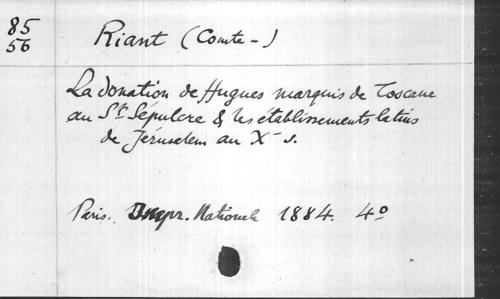 85
56
Riant (Comte -)
La donation de Hugues marquis de Toscane
au St Sépulcre & les établissements latins
de Jérusalem au Xe s.
Paris. Impr. Nationale 1884. 4o